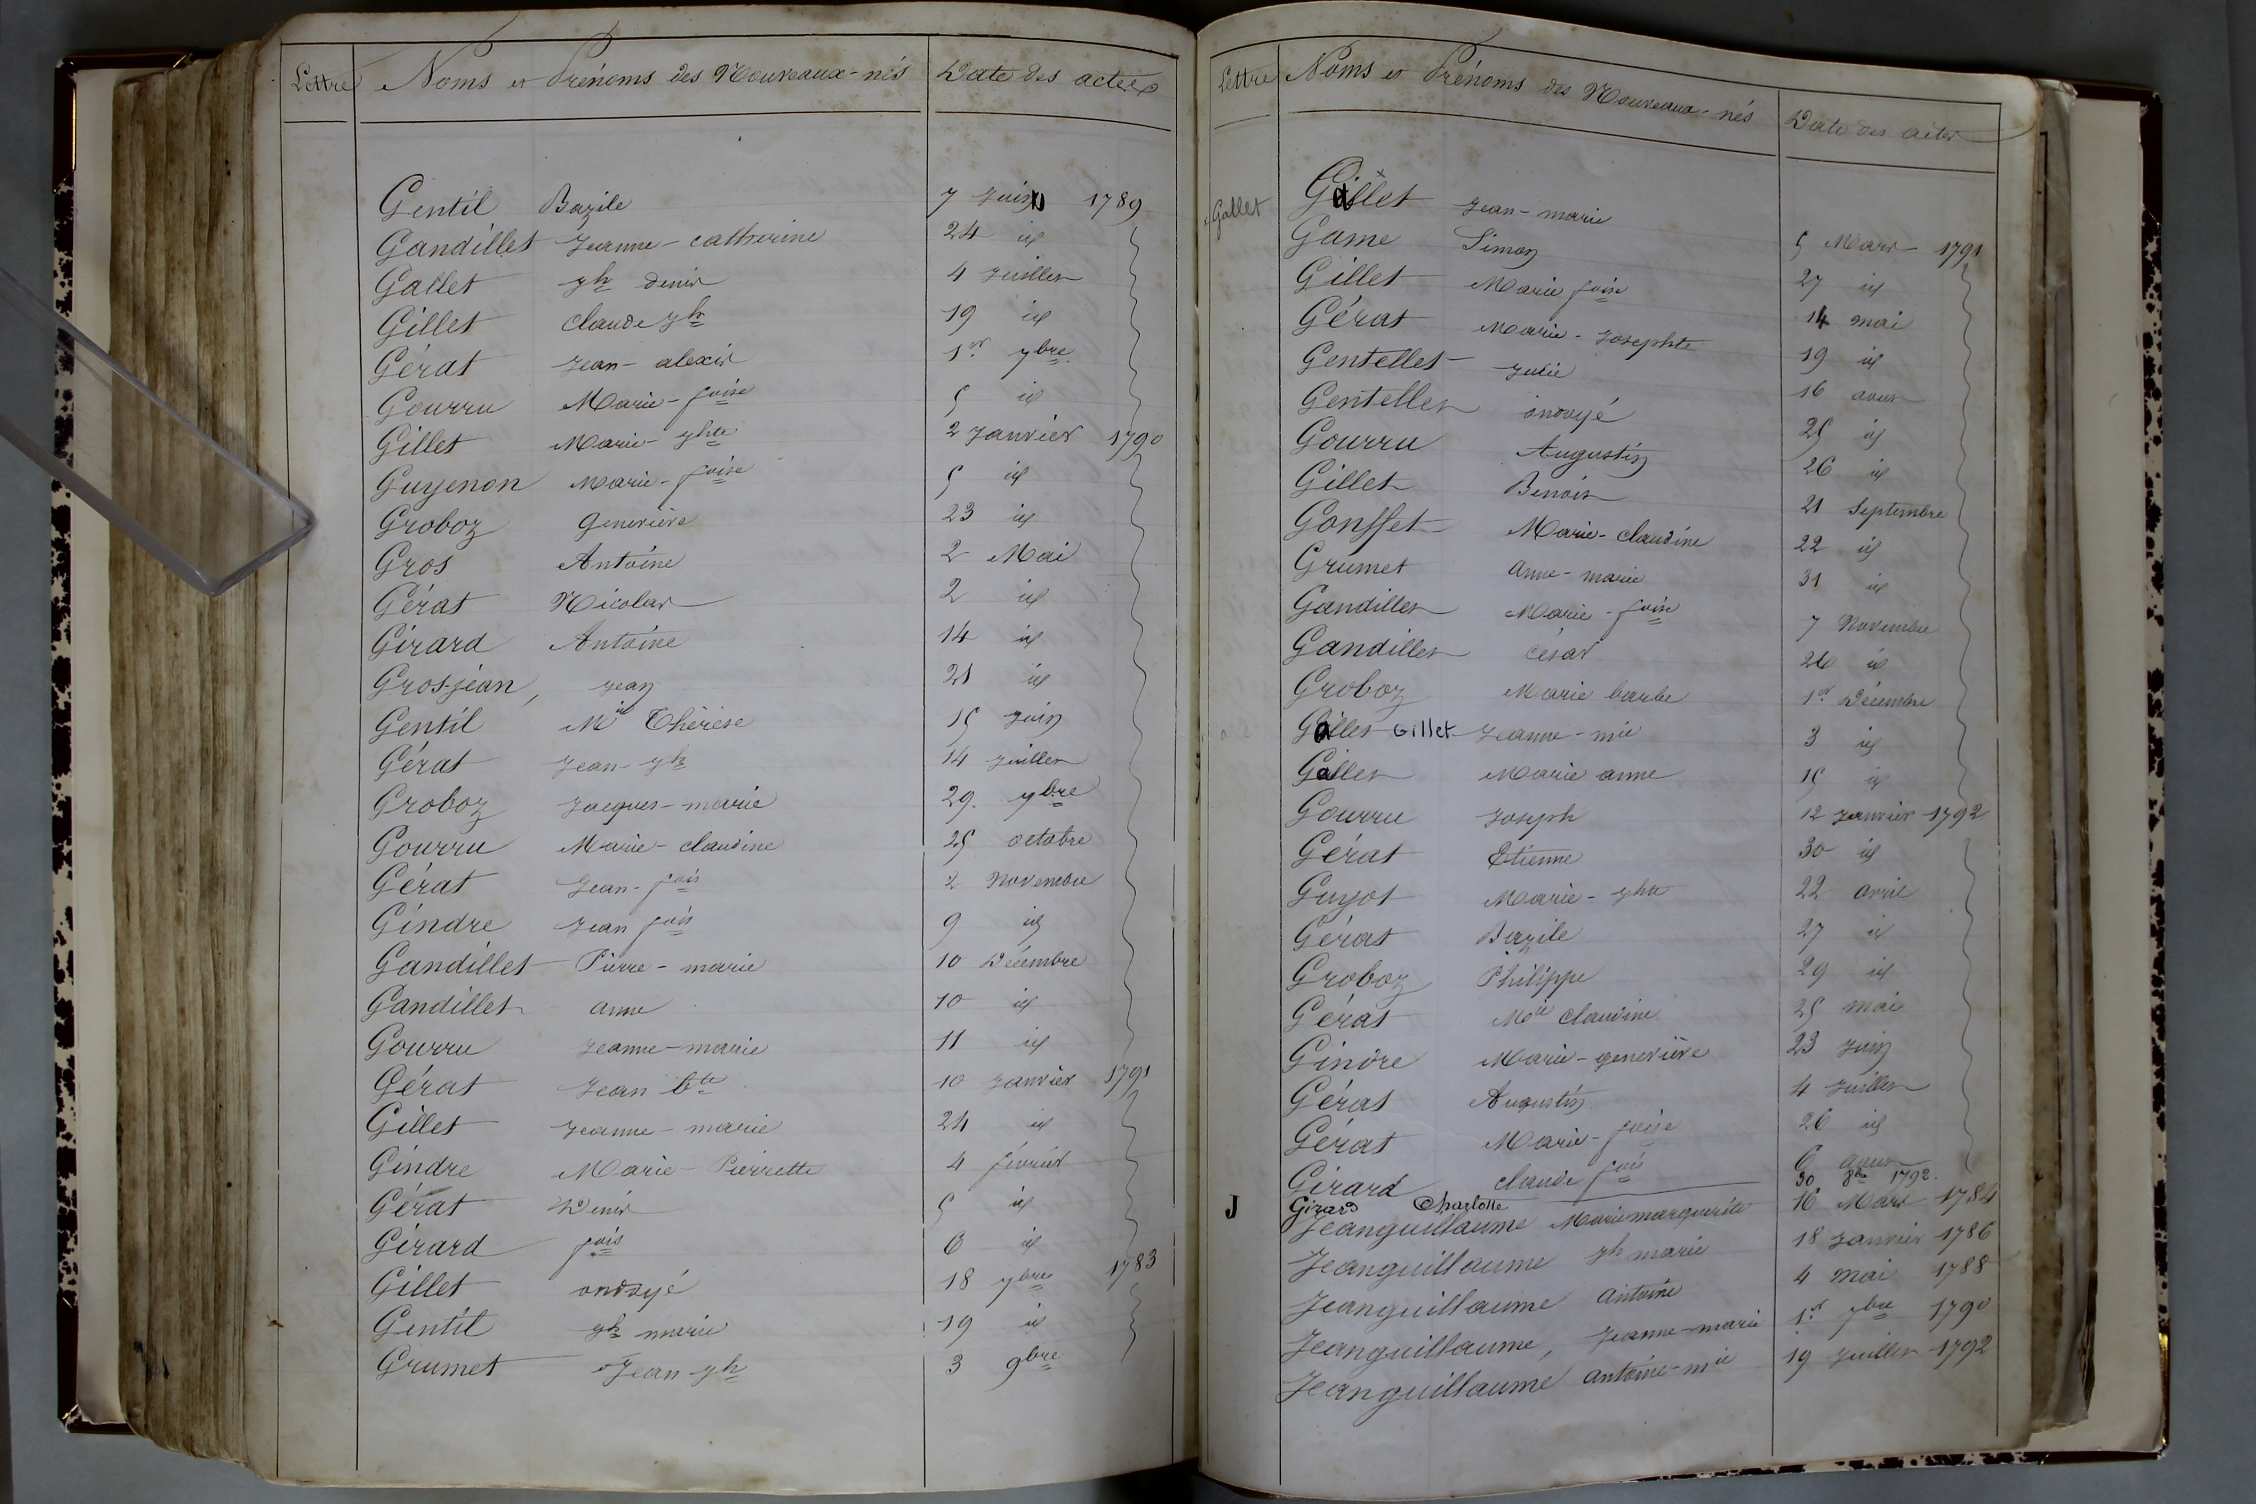 Lettre Noms et Prénoms des Nouveaux-nés Date des actes
Gentil Bazile 7 Juin 1789
Gandillet Jeanne-catherine 24 id
Gallet Jh denis 4 Juillet
Gillet claude Jh 19 id
Gérat Jean-alexis 1er 7bre
Gourru Marie-foise 5 id
Gillet Marie-Jhte 2 Janvier 1790
Guyenon Marie-foise 5 id
Groboz Geneviève 23 id
Gros Antoine 2 Mai
Gérat Nicolas 2 id
Girard Antoine 14 id
Gros-jean, Jean 21 id
Gentil Mie Thérèse 15 Juin
Gérat Jean-Jh 14 Juillet
Groboz Jacques-marie 29. 7bre
Gourru Marie-claudine 25 octobre
Gérat Jean-fois 2 Novembre
Gindre Jean fois 9 id
Gandillet Pierre-marie 10 Décembre
Gandillet anne 10 id
Gourru Jeanne-marie 11 id
Gérat Jean bte 10 Janvier 1791
Gillet Jeanne-marie 24 id
Gindre Marie-Pierrette 4 février
Gérat Denis 5 id
Girard fois 6 id
Gillet ondoyé 18 7bre 1783
Gentil Jh marie 19 id
Grumet Jean Jh 3 9bre
Lettre Noms et Prénoms des Nouveaux-nés Date des actes
Gallet Gallet Jean-marie 5 Mars 1791
Game Simon 27 id
Gillet Marie foise 14 mai
Gérat Marie-Josephte 19 id
Gentellet Julie 16 aout
Gentellet ondoyé 25 id
Gourru Augustin 26 id
Gillet Benoit 21 Septembre
Gonffet Marie-claudine 22 id
Grumet anne-marie 31 id
Gandillet Marie-foise 7 Novembre
Gandillet césar 26 id
Groboz Marie barbe 1er Décembre
Gallet Gillet Jeanne-mie 3 id
Gallet Marie anne 15 id
Gourru Joseph 12 Janvier 1792
Gérat Etienne 30 id
Guyot Marie-Jhte 22 avril
Gérat Bazile 27 id
Groboz Philippe 29 id
Gérat Mie claudine 25 mai
Gindre Marie-geneviève 23 Juin
Gérat Augustin 4 Juillet
Gérat Marie-foise 26 id
Girard claude fois 6 aout
Girard Charlotte 30 8bre 1792.
J Jeanguillaume Marie marguerite 16 Mars 1784
Jeanguillaume Jh marie 18 Janvier 1786
Jeanguillaume antoine 4 mai 1788
Jeanguillaume, Jeanne-marie 1er 7bre 1790
Jeanguillaume antoine-mie 19 Juillet 1792